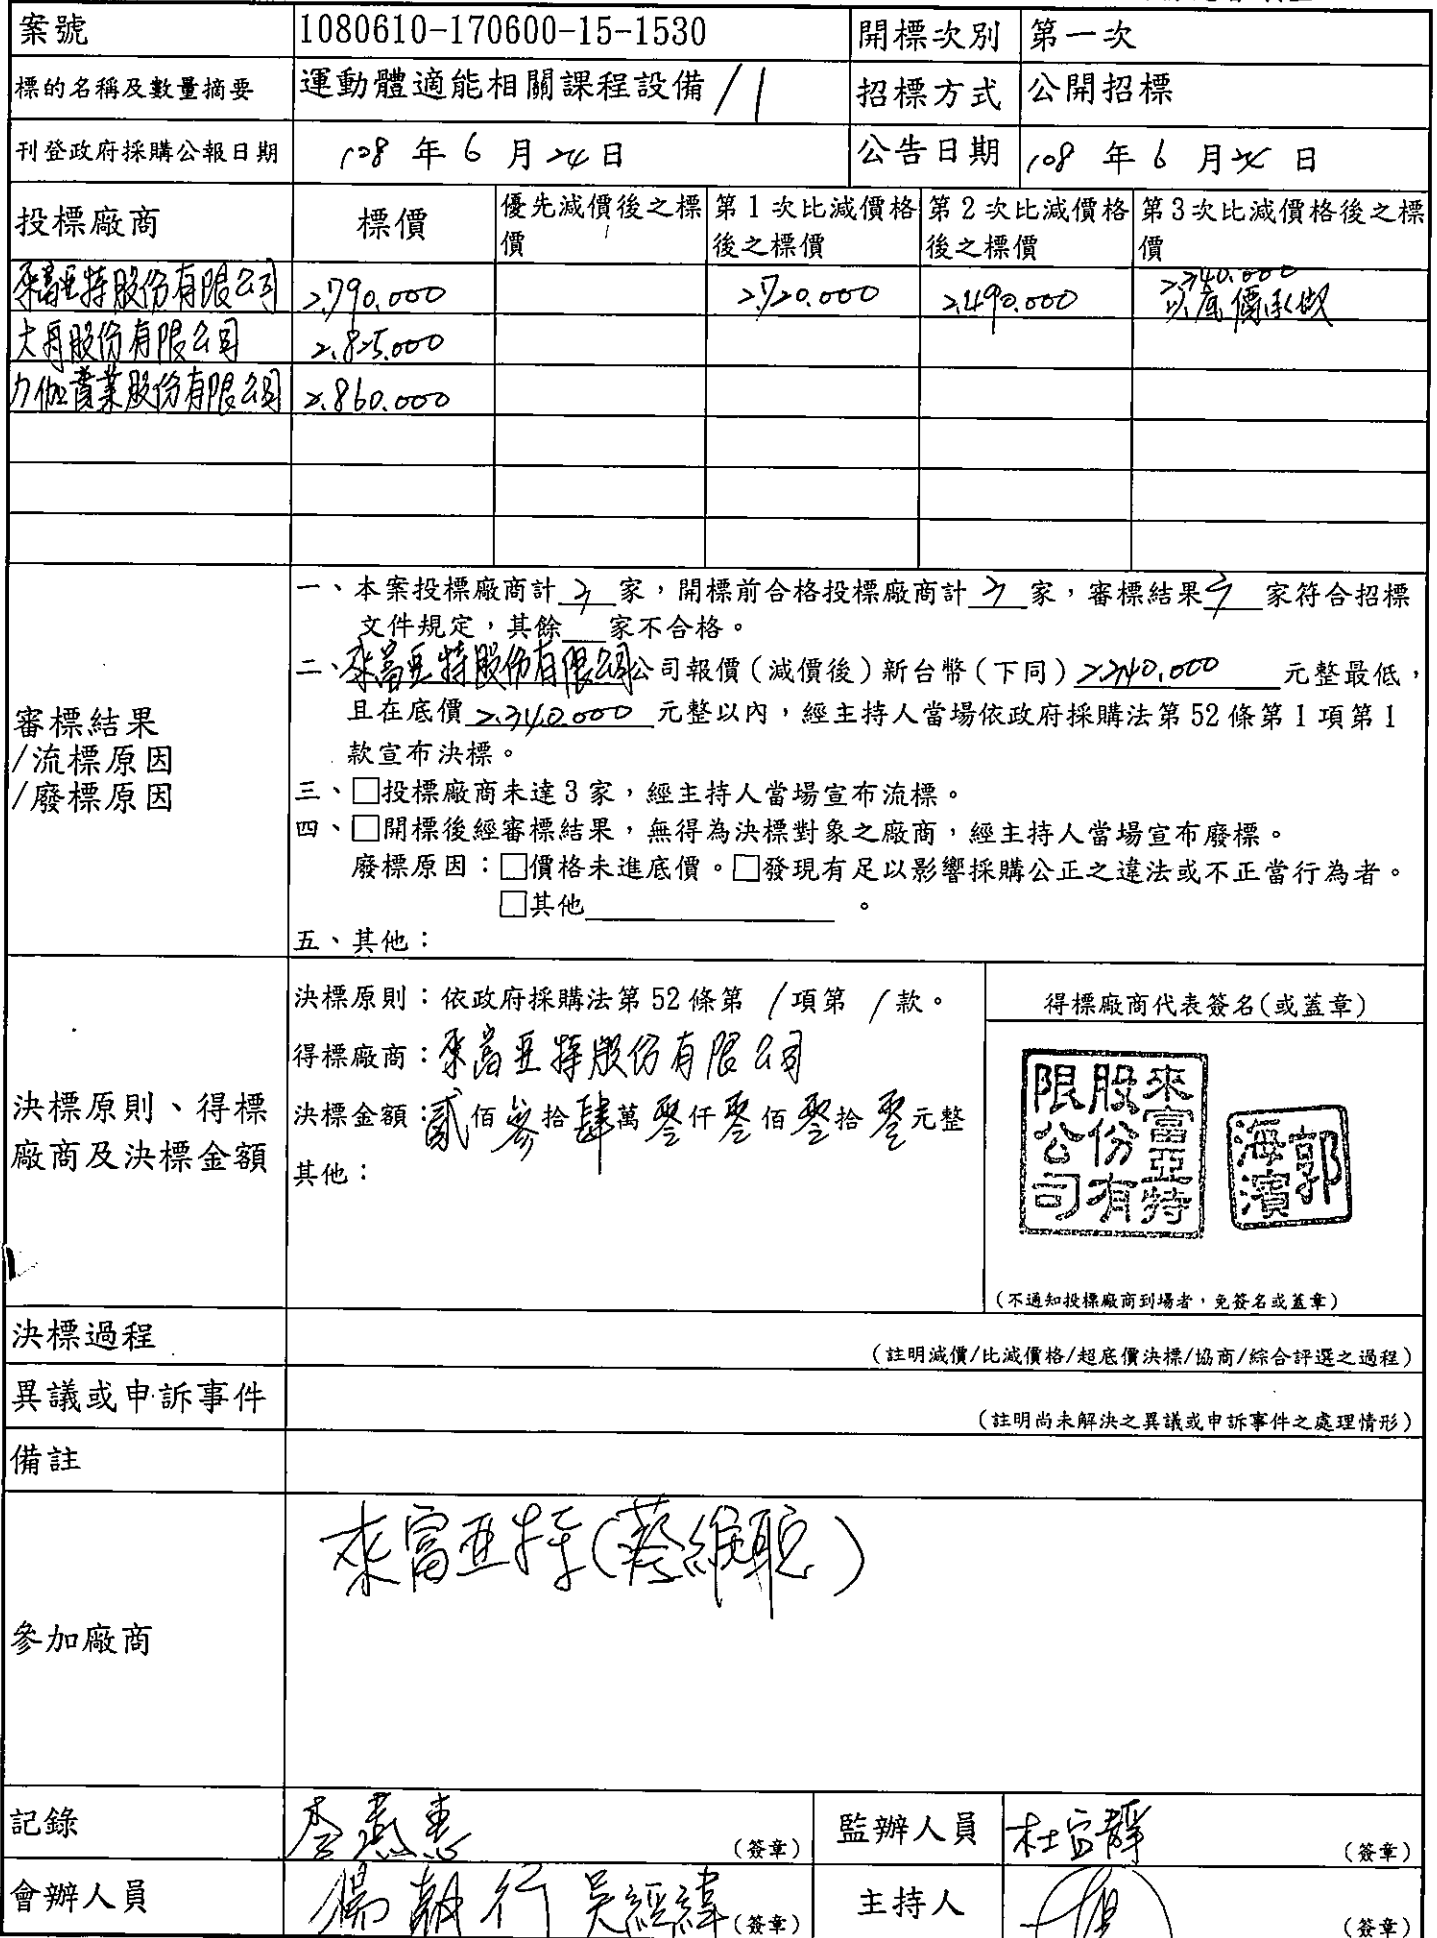 案號 1080610-170600-15-1530 開標次別 第一次
標的名稱及數量摘要 運動體適能相關課程設備/1 招標方式 公開招標
刊登政府採購公報日期 108 年 6 月 24 日 公告日期 108 年 6 月 日
投標廠商 標價 優先減價後之標價 第1次比減價格後之標價 第2次比減價格後之標價 第3次比減價格後之標價
來富亞特股份有限公司 2,790,000 2,720,000 2,490,000 2,340,000 以底價承做
股份有限公司 2,825,000
力伽實業股份有限公司 2,860,000
審標結果
/流標原因
/廢標原因
一、本案投標廠商計 3 家，開標前合格投標廠商計 3 家，審標結果 3 家符合招標
文件規定，其餘 家不合格。
二、來富亞特股份有限公司公司報價(減價後)新台幣(下同) 2,340,000 元整最低，
且在底價 2,340,000 元整以內，經主持人當場依政府採購法第 52 條第 1 項第 1
款宣布決標。
三、□投標廠商未達 3 家，經主持人當場宣布流標。
四、□開標後經審標結果，無得為決標對象之廠商，經主持人當場宣布廢標。
廢標原因：□價格未進底價。□發現有足以影響採購公正之違法或不正當行為者。
□其他 。
五、其他：
決標原則、得標
廠商及決標金額
決標原則：依政府採購法第 52 條第 1 項第 1 款。
得標廠商：來富亞特股份有限公司
決標金額：貳佰參拾肆萬零仟零佰零拾零元整
其他：
得標廠商代表簽名(或蓋章)
來富亞特
股份有
限公司
郭
海濱
(不通知投標廠商到場者，免簽名或蓋章)
決標過程 (註明減價/比減價格/超底價決標/協商/綜合評選之過程)
異議或申訴事件 (註明尚未解決之異議或申訴事件之處理情形)
備註
參加廠商 來富亞特(蔡維聰)
記錄 李燕惠 (簽章) 監辦人員 杜宜靜 (簽章)
會辦人員 楊 行 吳經緯 (簽章) 主持人 (簽章)